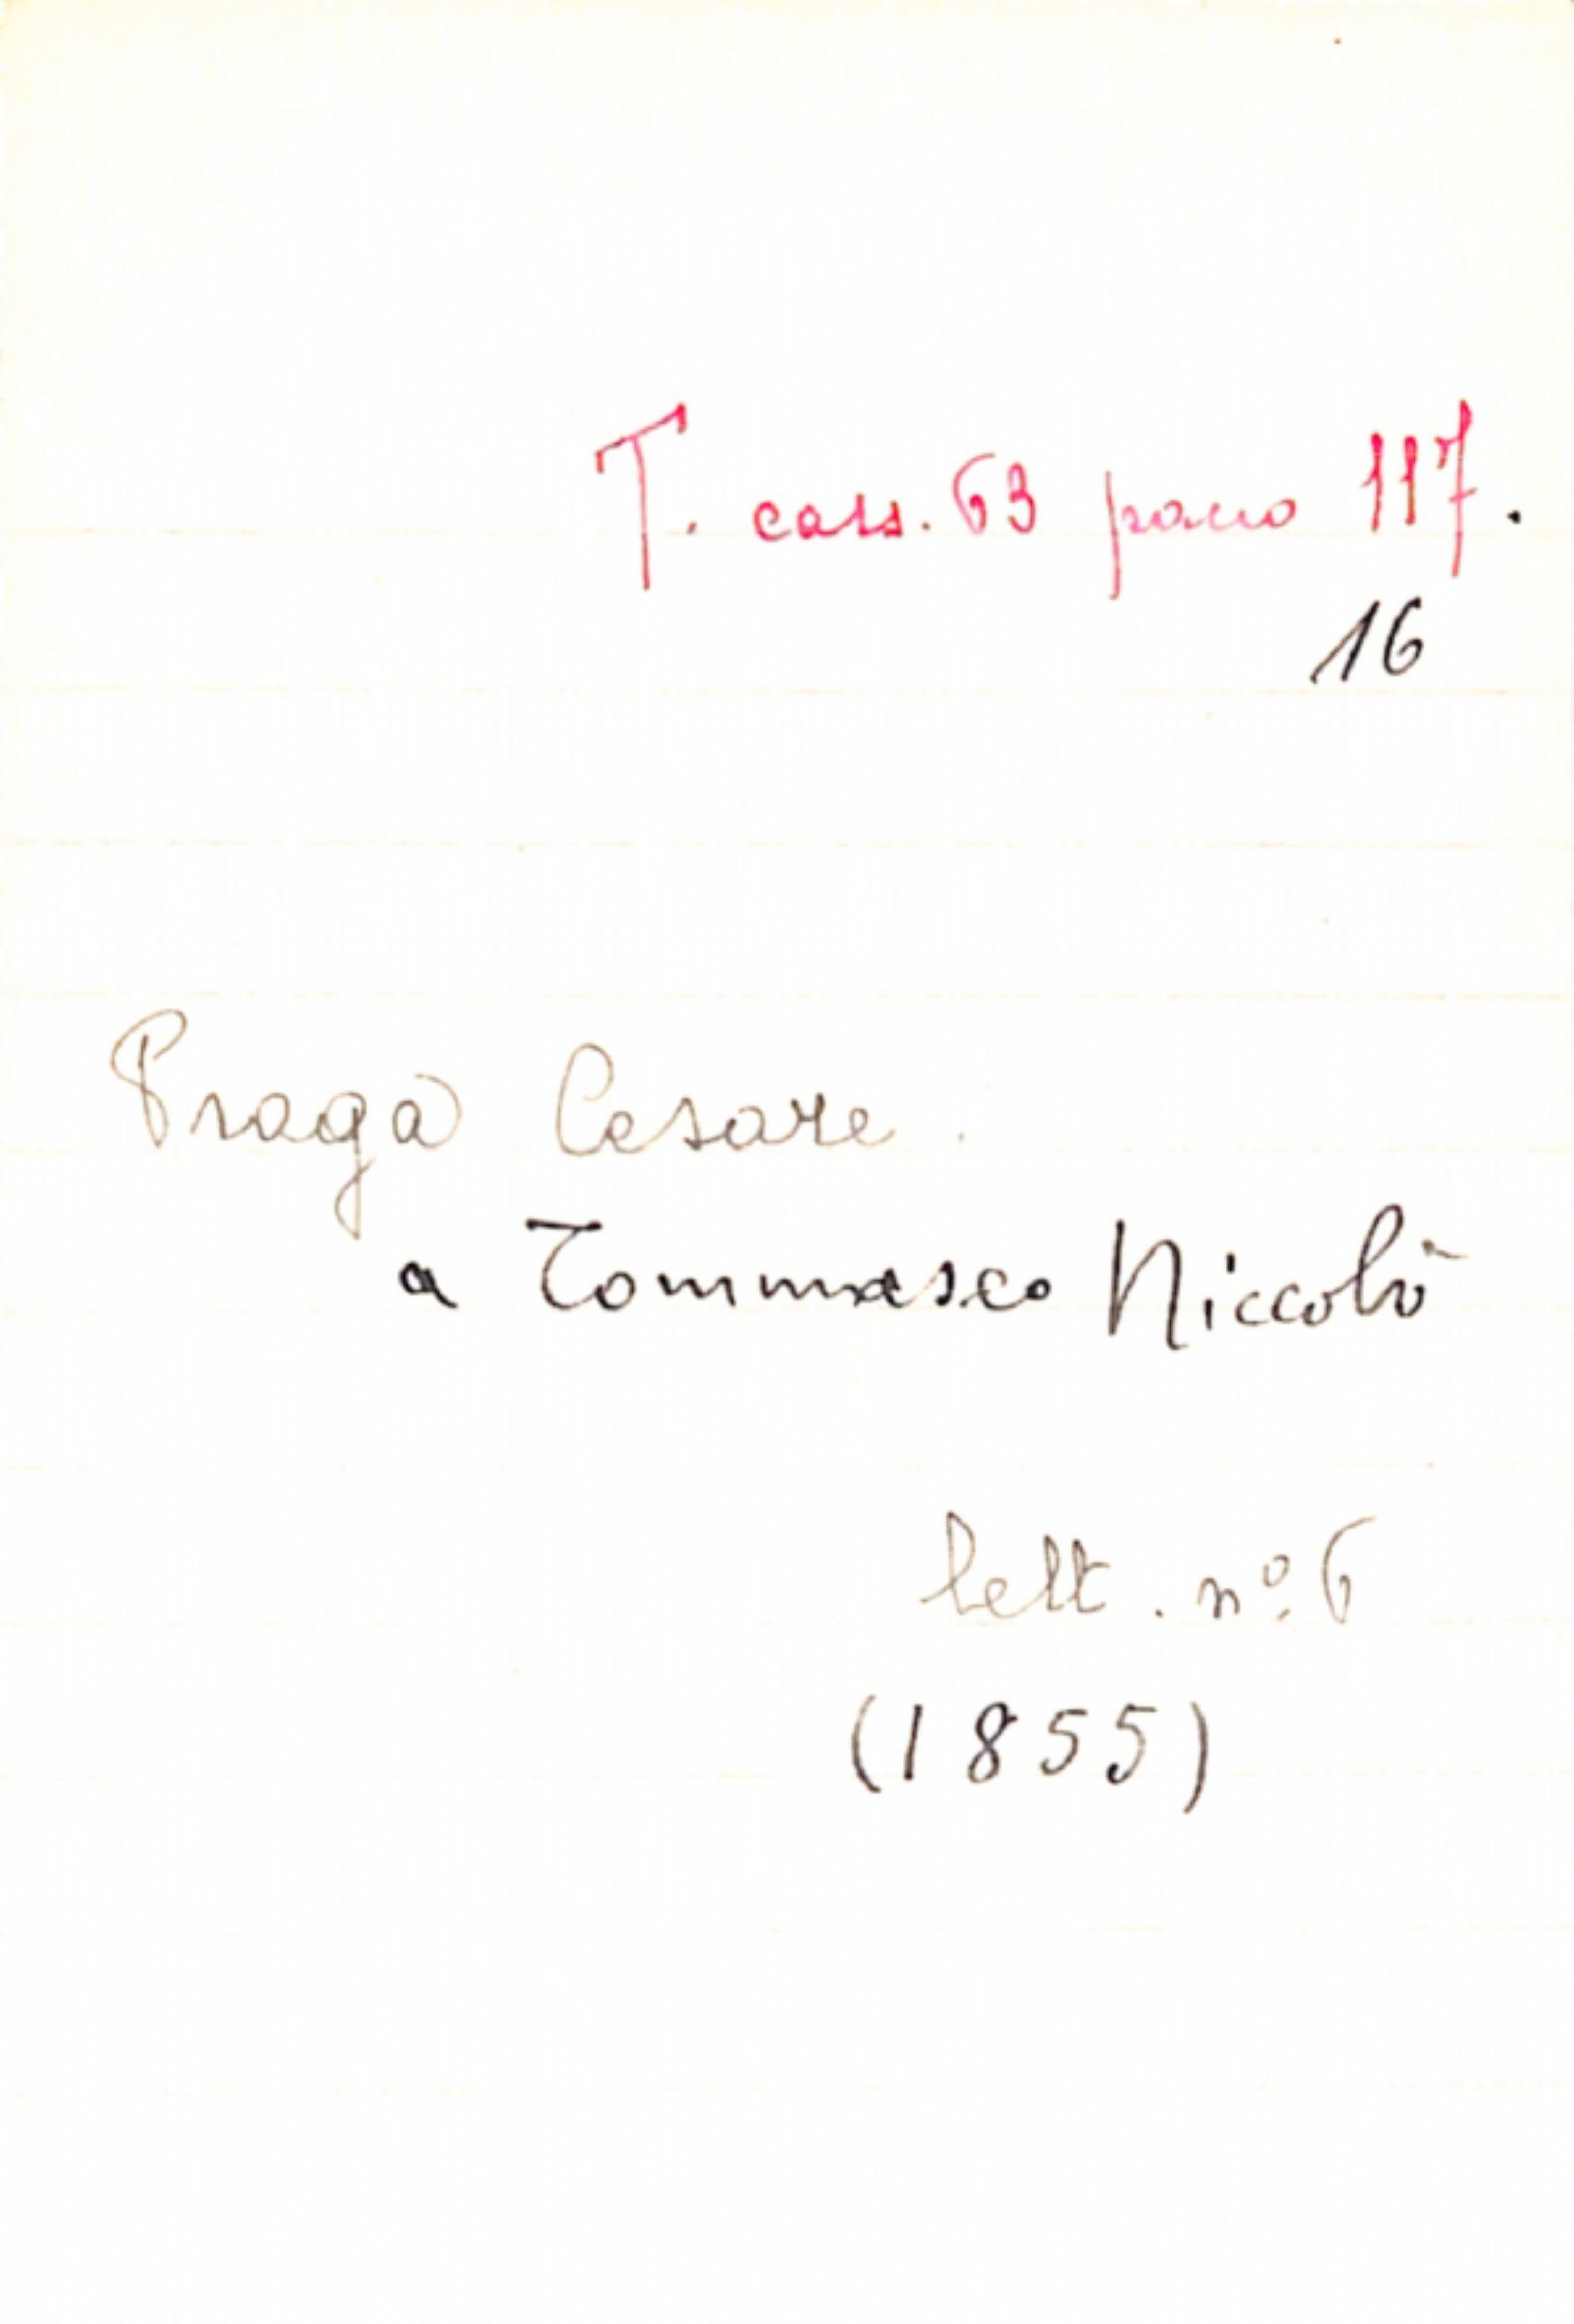 T. cass. 63 pacco 117.
16
Praga Cesare.
a Tommaseo Niccolò
lett. nº. 6
(1855)